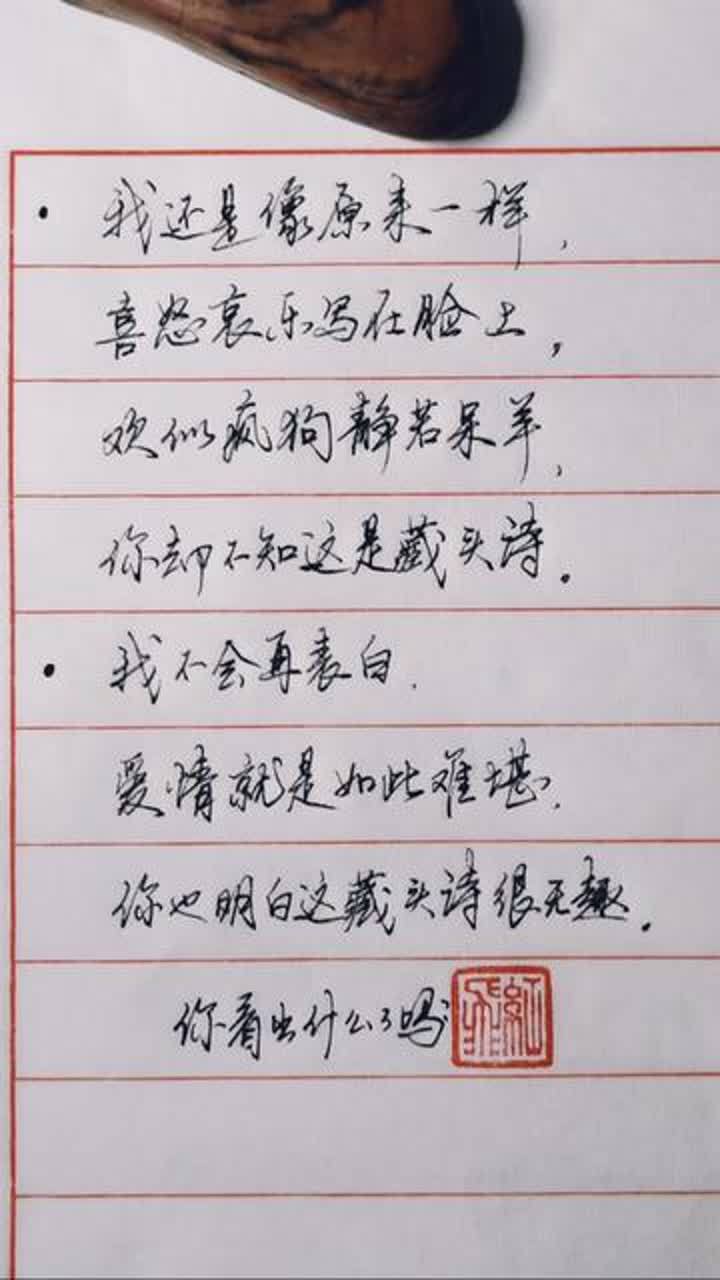 · 我还是像原来一样,
喜怒哀乐写在脸上,
欢似疯狗静若呆羊,
你却不知这是藏头诗。
· 我不会再表白.
爱情就是如此难堪.
你也明白这藏头诗很无趣.
你看出什么了吗